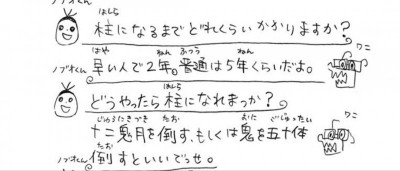 ノブオくん はしら
柱になるまでどれくらいかかりますか?
ノブオくん はや ねん ふつう ねん ワニ
早い人で2年。普通は5年くらいだよ。
はしら
どうやったら柱になれまっか?
じゅうにきづき たお おに ごじゅったい ワニ
十二鬼月を倒す、もしくは鬼を五十体
ノブオくん たお
倒すといいでっせ。